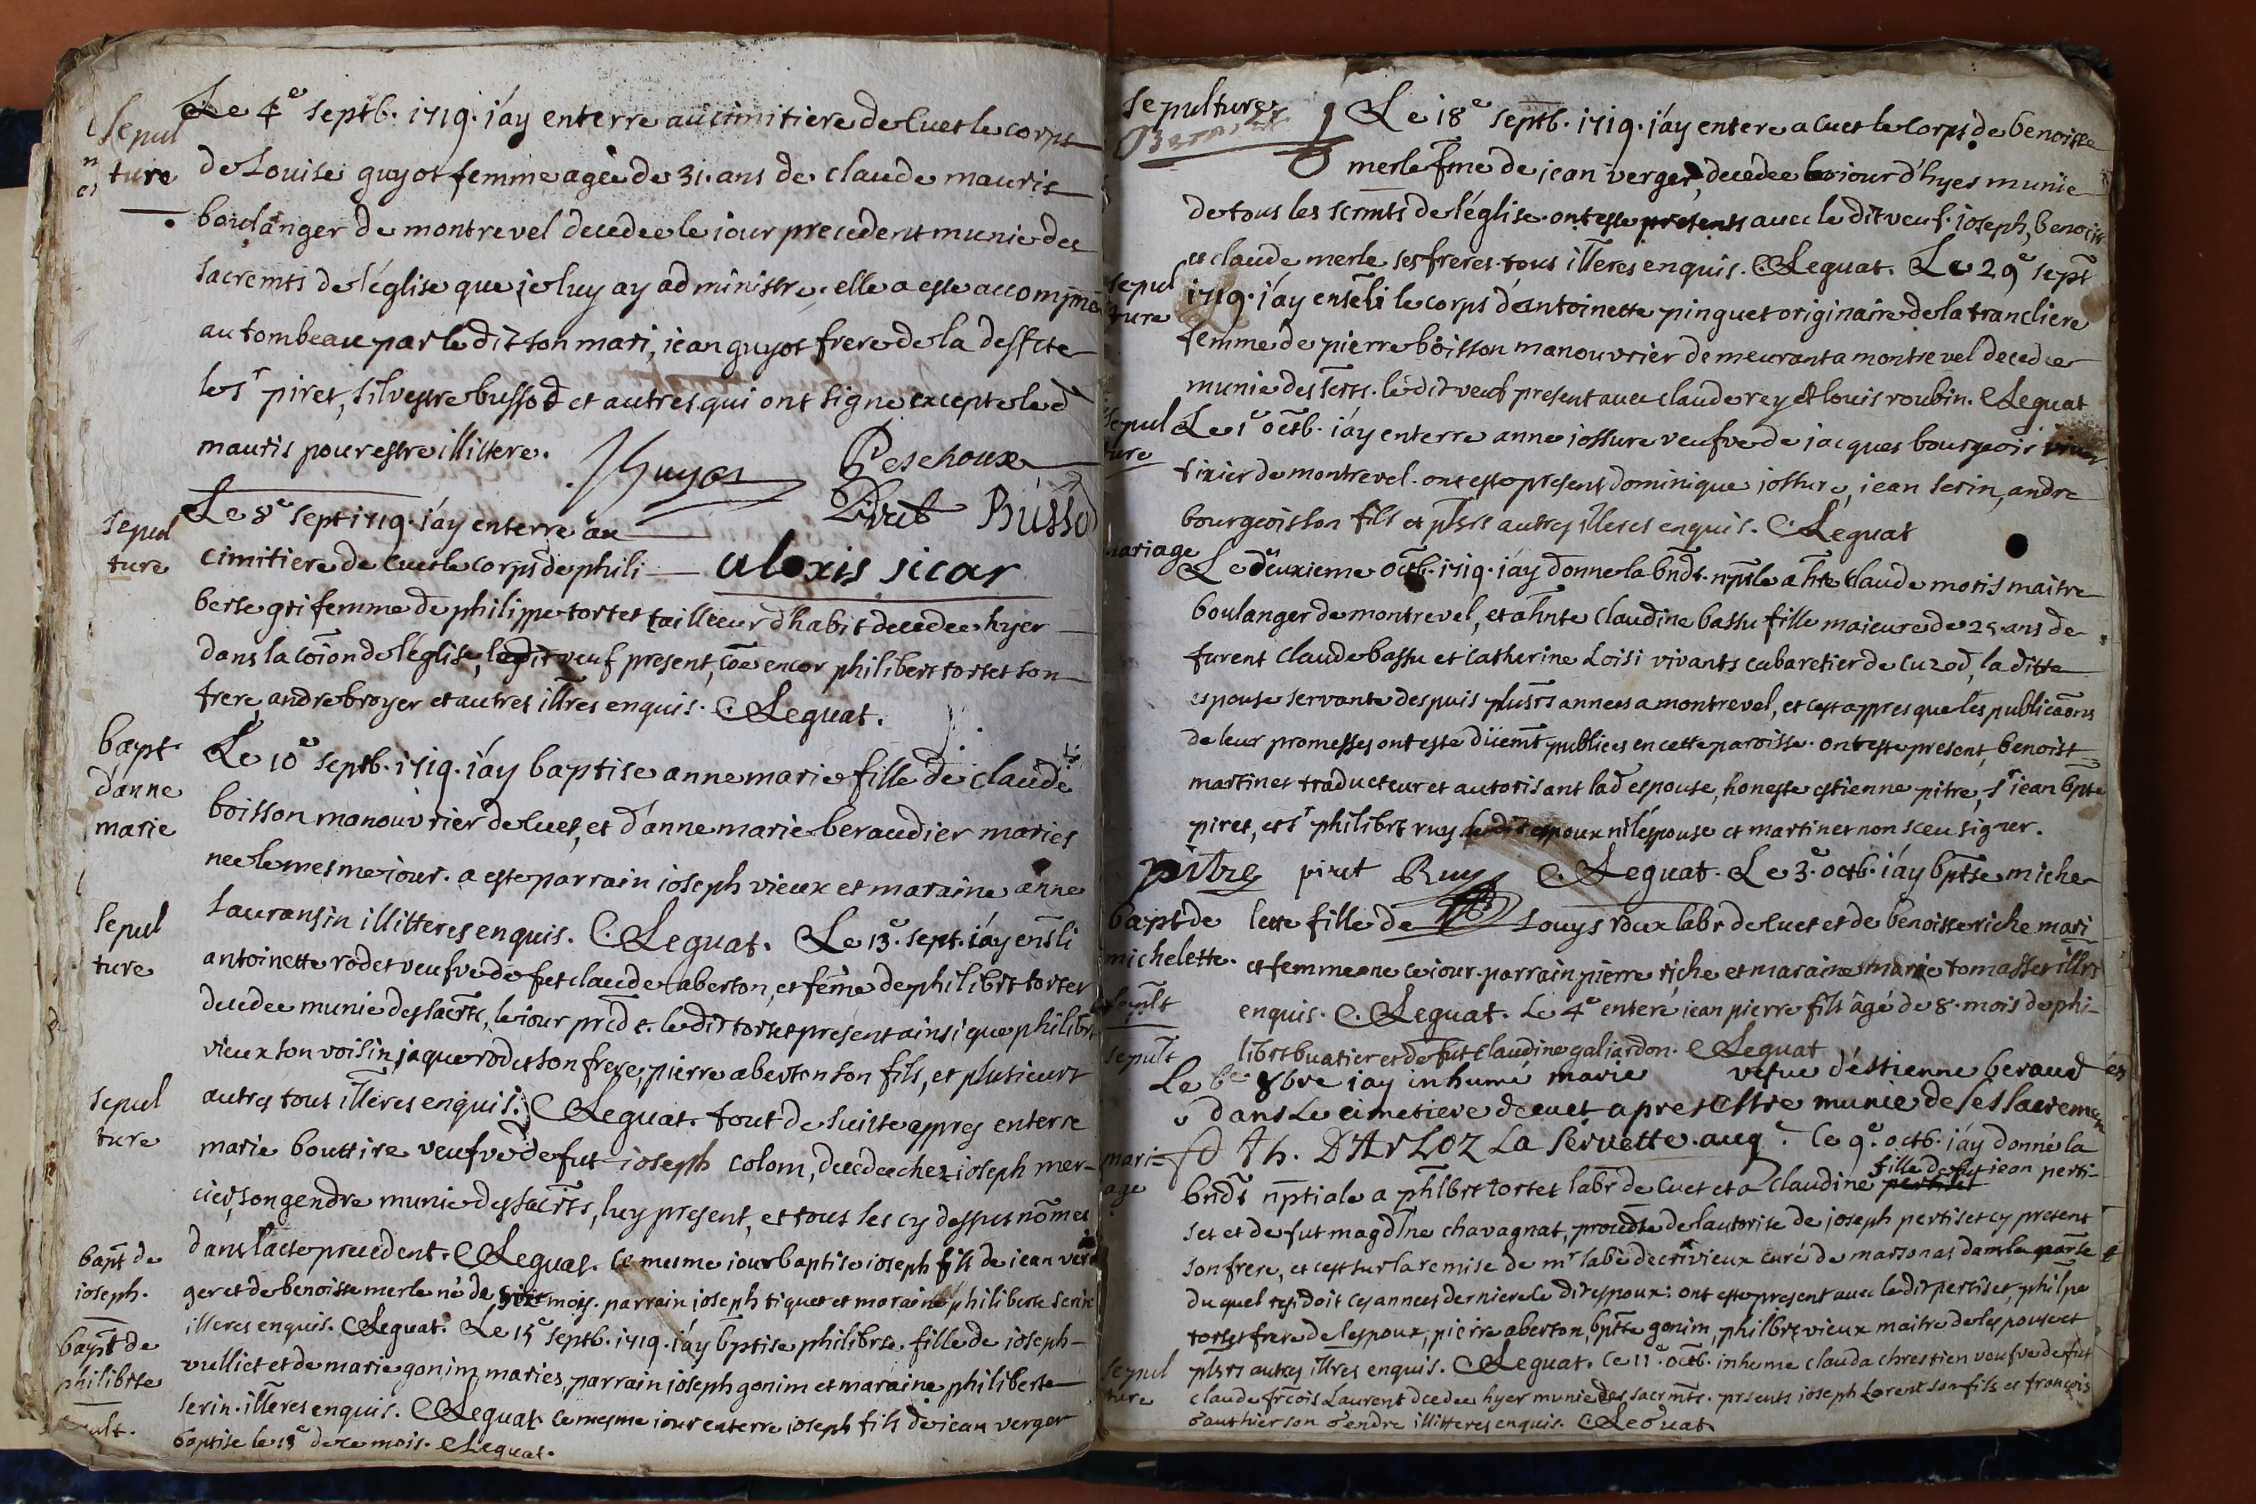 sepul
ture
Le 4e septb. 1719. j'ay enterre au cimitiere de Cuet le corps
de Louise guyot femme agèe de 31. ans de claude mauris
boulanger de montrevel decedee le iour precedent munie des
sacremts de l'église que je luy ay administre. elle a este accompnè
au tombeau par le dit son mari, jean guyot frere de la deffcte
le sr piret, silvestre bussod et autres qui ont signe excepte led
mauris pour estre illittere. JGuyot Peschoux
Piret Bussod
alexis sicar
sepul
ture
Le 8e sept 1719. j'ay enterre au
cimitiere de Cuet le corps de phili
berte gri femme de philippe tortet tailleur d'habit decedee hyer
dans la cõion de l'église, le dit veuf present, cõe encor philibert tortet son
frere, andre broyer et autres illres enquis. C. Leguat.
bapt
d'anne
marie
Le 10e septb. 1719. j'ay baptise anne marie fille de claude
boisson manouvrier de Cuet, et d'anne marie beraudier maries
nee le mesme iour. a este parrain joseph vieux et maraine anne
sauransin illitteres enquis. C. Leguat. Le 13e. sept. j'ay ensli
sepul
ture
antoinette rodet veufve de fut claude aberton, et feme de philibrt tortet
decedee munie des sacrts, le iour prcdt. le dit tortet present ainsi que philibrt
vieux son voisin, jaque rodet son frere, pierre aberton son fils, et plusieurs
autres tous illeres enquis. C. Leguat. tout de suitte appres enterre
sepul
ture
marie bouttire veufve de fut joseph colom, decedee chez joseph mer-
cier, son gendre munie des sacrts, luy present, et tous les cy dessus nomes
dans l'acte precedent. C. Leguat. Ce mesme iour baptise joseph fils de jean ver
bapt de
joseph.
ger et de benoiste merle né de mois. parrain joseph tiquet et maraine philiberte serin
illeres enquis. C. Leguat. Le 15e septb. 1719. j'ay bptise philibrte fille de joseph
bapt de
philibrte
vulliet et de marie gonim maries, parrain joseph gonim et maraine philiberte
serin. illeres enquis. C. Leguat. Ce mesme iour enterre joseph fils de jean verger
sult.
baptise le 13e de ce mois. C. Leguat.
sepultures
Le 18e septb. 1719. j'ay entere a Cuet le corps de benoiste
merle fme de jean verger, decedee le iour d'hyer munie
de tous les scrmts de l'église. ont este présents avec le dit veuf. joseph, benoist
et claude merle ses freres. tous illeres enquis. C. Leguat. Le 29e sept
sepul
ture
1719. j'ay enseli le corps d'antoinette pinguet originaire de la tranclière
femme de pierre boisson manouvrier demeurant a montrevel decedee
munie des scrts. le dit veuf present avec claude rey et louis roubin. C. Leguat
sepul
ture
Le 1e octb. j'ay enterre anne jossure veufve de jacques bourgeois
tixier de montrevel. ont este present dominique jossure, jean serin, andre
bourgeois son fils et plsrs autres illeres enquis. C. Leguat
mariage
Le deuxieme octb. 1719. j'ay donne la bndt. npsle a hte Claude moris maitre
boulanger de montrevel, et a hnte Claudine bassu fille maieure de 25 ans de
furent Claude bassu et Catherine Loisi vivants cabaretier de Cuzod, la ditte
espouse servante despuis plusrs annees a montrevel, et c'est appres que les publicaons
de leur promesses ont este düemt publiees en cette paroisse. ont este present, benoist
martinet traducteur et autorisant lad espouse, honeste estienne pitre, sr jean bpte
piret, et sr philibrt ruy le dit espoux ni l'épouse et martinet non sceu signer.
pitre piret Ruy C. Leguat. Le 3e. octb. j'ay bptse miche
bapt de
michelette.
lette fille de Louys roux labr de Cuet et de benoiste riche mari
et femme ne ce iour. parrain pierre riche et maraine marie tomasset illrs
sepult
enquis. C. Leguat. Le 4e enteré jean pierre fils âgé de 8. mois de phi-
librt buatier et de fut Claudine galiardon. C. Leguat
sepult
Le 6e 8bre jay inhumé marie vefue d'éstienne beraud
dans Le cimetiere de cuet apres estre munie de ses sacremen
th. DArLoz La Servette. Ce 9e. octb. j'ay donné la
mari=
age
fille de fut jean perti-
bndt nptiale a philbrt tortet labr de Cuet et a Claudine
set et de fut magdlne chavagnat, procdte de l'autorite de joseph pertiset cy present
son frere, et c'est sur la remise de mr l'abé decri vieux curé de marsonas dans la parsse
du quel residoit ces annees derniere le dit espoux: ont este present avec le dit pertiset, philpe
tortet frere de l'espoux, pierre aberton, bptte gonim, philbrt vieux maitre de l'espouse et
plsrs autres illres enquis. C. Leguat. Ce 11e. octb. inhume clauda chrestien veufve de fut
sepul
ture
claude frcois Laurent dcedee hyer munie des sacrmts. prsents joseph Lorent son fils et françois
gauthier son gendre illitteres enquis. C. Leguat